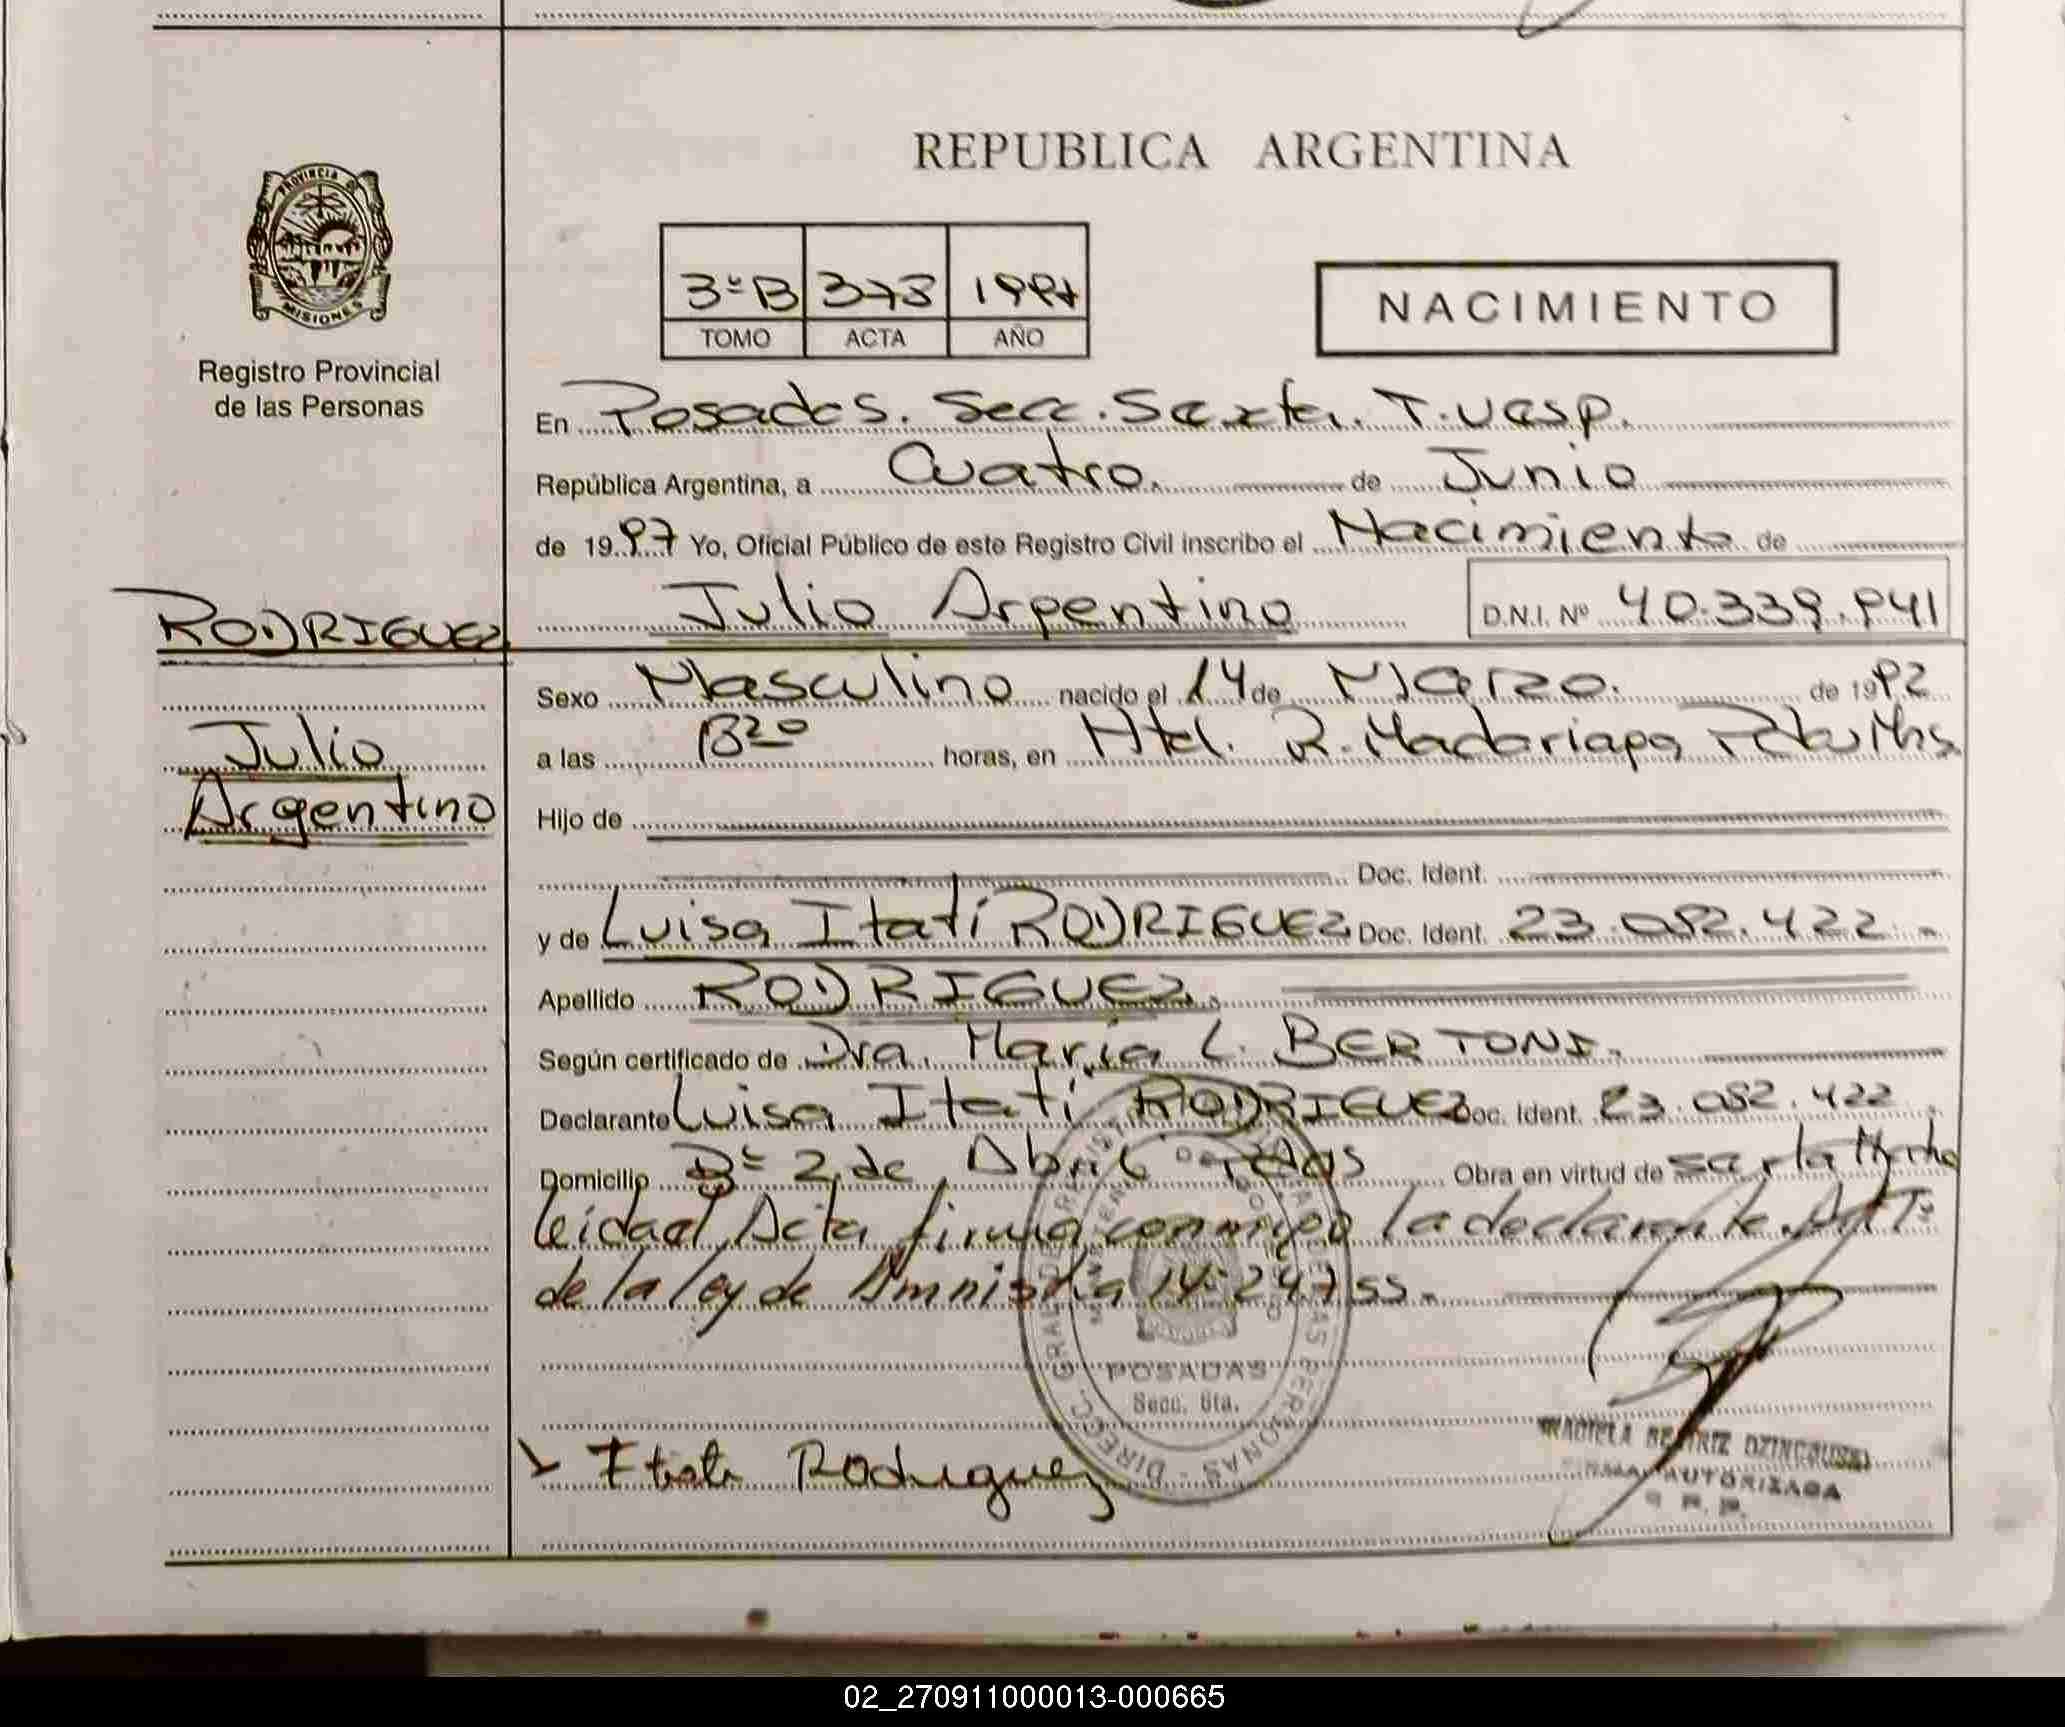 REPUBLICA ARGENTINA
PROVINCIA DE
MISIONES
Registro Provincial
de las Personas
3ºB 373 1997
TOMO ACTA AÑO
NACIMIENTO
En Posadas. Secc. Sexta.
República Argentina, a Cuatro. de Junio
de 1997 Yo, Oficial Público de este Registro Civil inscribo el Nacimiento de
Julio Argentino D.N.I. Nº 40.339.941
RODRIGUEZ
Julio
Argentino
Sexo Masculino nacido el 14 de Marzo. de 1992
a las horas, en R. Madariaga
Hijo de
Doc. Ident.
y de Luisa Itatí RODRIGUEZ Doc. Ident. 23.082.422.-
Apellido RODRIGUEZ.
Según certificado de Dra. María L. BERTONI.
Declarante Luisa Itatí RODRIGUEZ Doc. Ident. 23.082.422
Domicilio Bº 2 de Abril Obra en virtud de
leida el Acta firma conmigo la declarante.
de la ley de Amnistia
POSADAS
Secc. 6ta.
Itati Rodriguez
BEATRIZ
FIRMA AUTORIZADA
R. P. P.
02_270911000013-000665